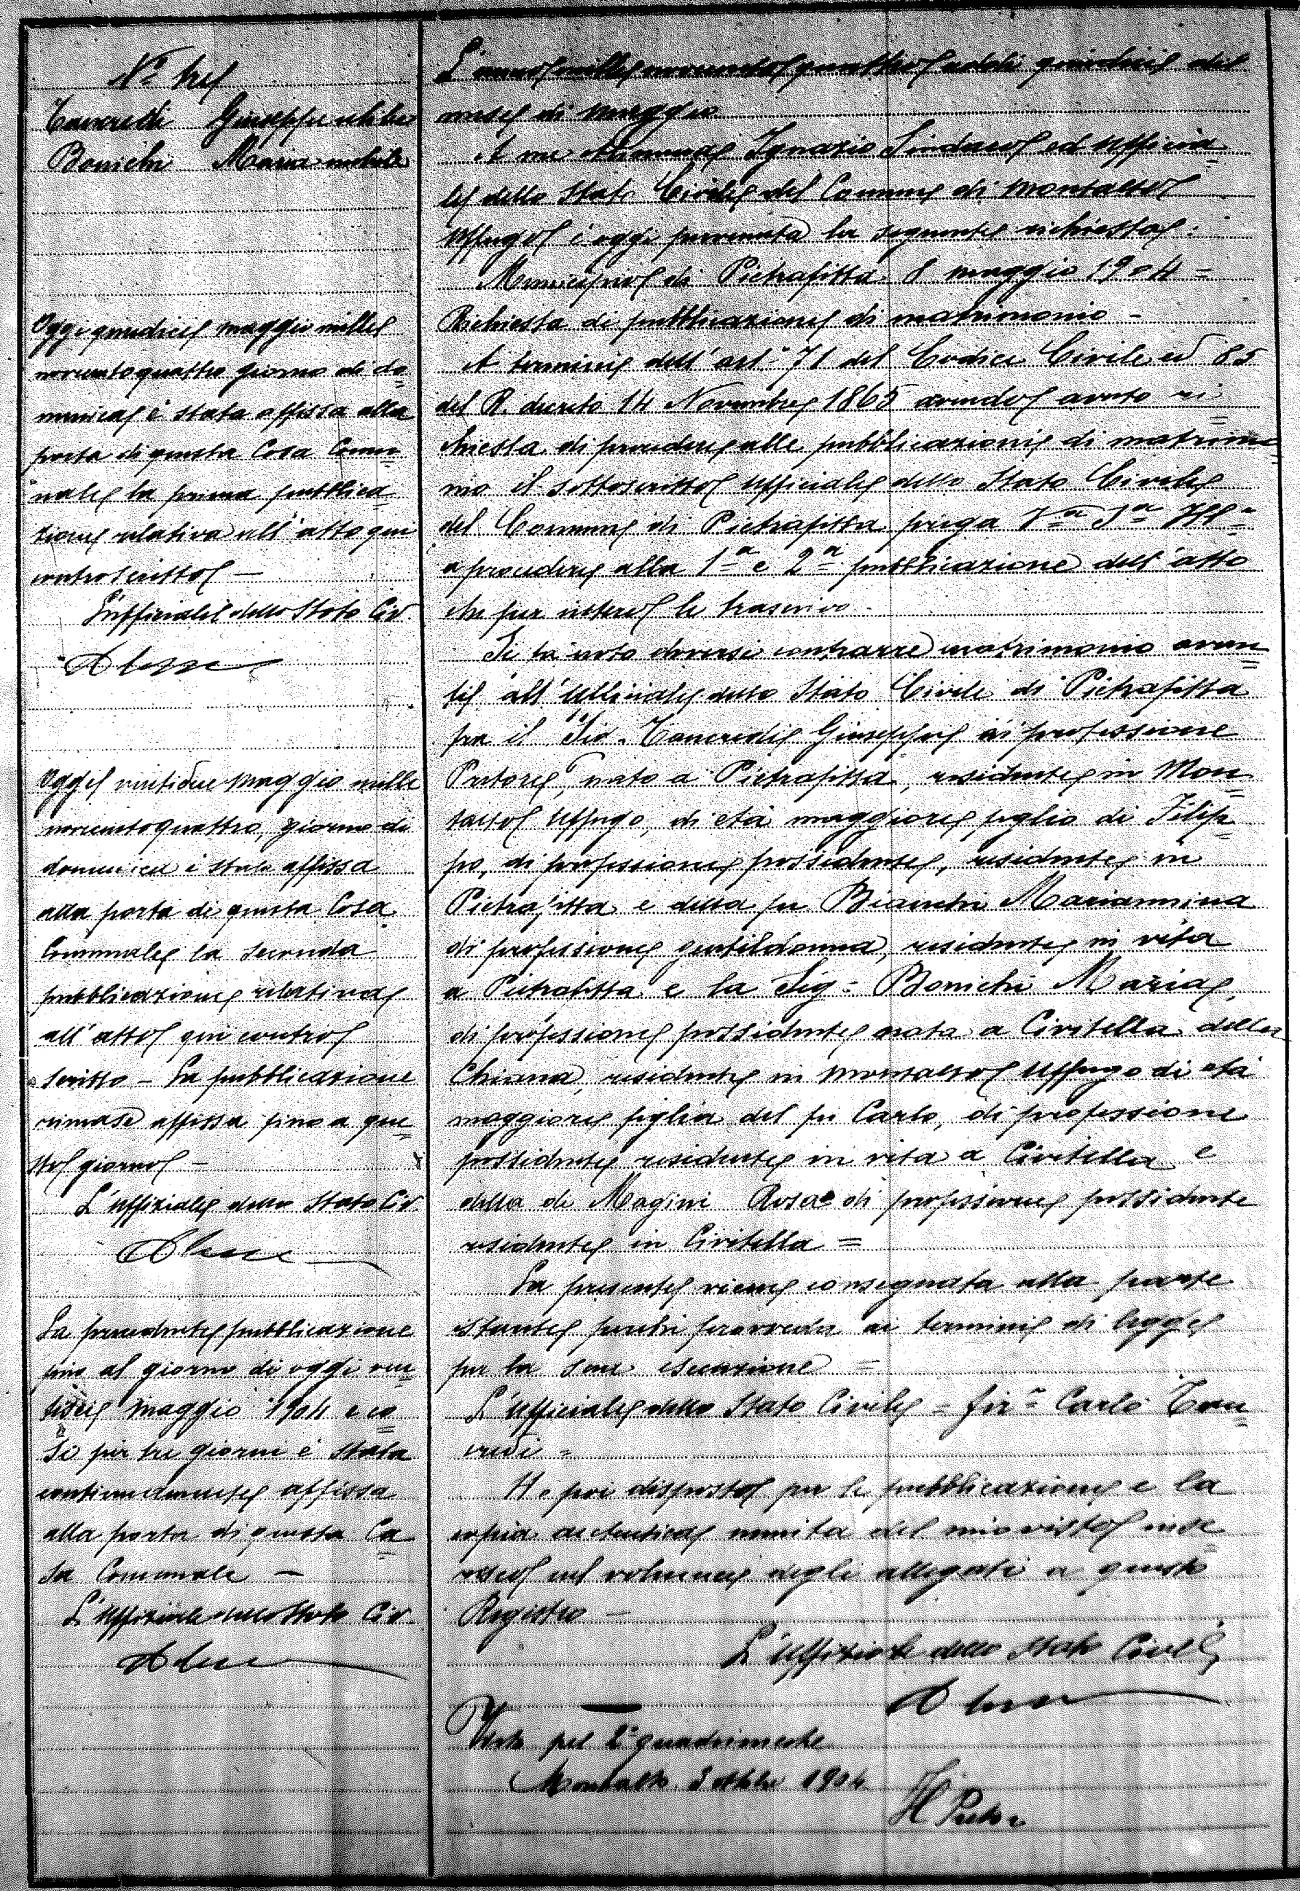 N.° tre
Tancredi Giuseppe celibe
Bonichi Maria nubile
Oggi quindici maggio mille
novecentoquattro giorno di do=
menica è stata affissa alla
porta di questa Casa Comu=
nale la prima pubblica=
zione relativa all'atto qui
controscritto —
L'ufficiale dello Stato Civ.
Oggi ventidue maggio mille
novecentoquattro, giorno di
domenica è stata affissa
alla porta di questa Casa
Comunale la seconda
pubblicazione relativa
all'atto qui contro
scritto — La pubblicazione
rimase affissa fino a que=
sto giorno —
L'Uffiziale dello Stato Civ.
La precedente pubblicazione
fino al giorno di oggi ven=
ticinque maggio 1904 e co=
sì per tre giorni è stata
continuamente affissa
alla porta di questa Ca=
sa Comunale —
L'Uffiziale dello Stato Civ.
L'anno mille novecento quattro addì quindici del
mese di maggio
A me Ignazio Sindaco ed Ufficia=
le dello Stato Civile del Comune di Montalto
Uffugo è oggi pervenuta la seguente richiesta:
Municipio di Pietrafitta 8 maggio 1904 =
Richiesta di pubblicazione di matrimonio —
A termine dell'art. 71 del Codice Civile ed 85
del R. decreto 14 Novembre 1865 avendo avuto ri
chiesta di procedere alle pubblicazioni di matrimo=
nio il sottoscritto Ufficiale dello Stato Civile
del Comune di Pietrafitta prega V.ra S.a Ill.a
a procedere alla 1.a e 2.a pubblicazione dell'atto
che per intero le trascrivo.
Si fa noto doversi contrarre matrimonio avan=
ti all'Ufficiale dello Stato Civile di Pietrafitta
fra il Sig. Tancredi Giuseppe di professione
Pretore, nato a Pietrafitta, residente in Mon=
talto Uffugo, di età maggiore figlio di Filip=
po, di professione possidente, residente in
Pietrafitta e della fu Bianchi Mariannina
di professione gentildonna, residente in vita
a Pietrafitta e la Sig.= Bonichi Maria,
di professione possidente nata a Civitella della
Chiana, residente in Montalto Uffugo di età
maggiore figlia del fu Carlo, di professione
possidente residente in vita a Civitella e
della di Magini Rosa di professione possidente
residente in Civitella =
La presente viene consegnata alla parte
istante perchè provveda ai termini di legge
per la sua esecuzione =
L'Ufficiale dello Stato Civile = fir.° Carlo Tan=
credi =
Ho poi disposto per le pubblicazione e la
copia autentica munita del mio visto inse=
risco nel volume degli allegati a questo
Registro —
L'Uffiziale dello Stato Civile
Visto pel 2° quadrimestre
Montalto 3 1904
Il Pretore